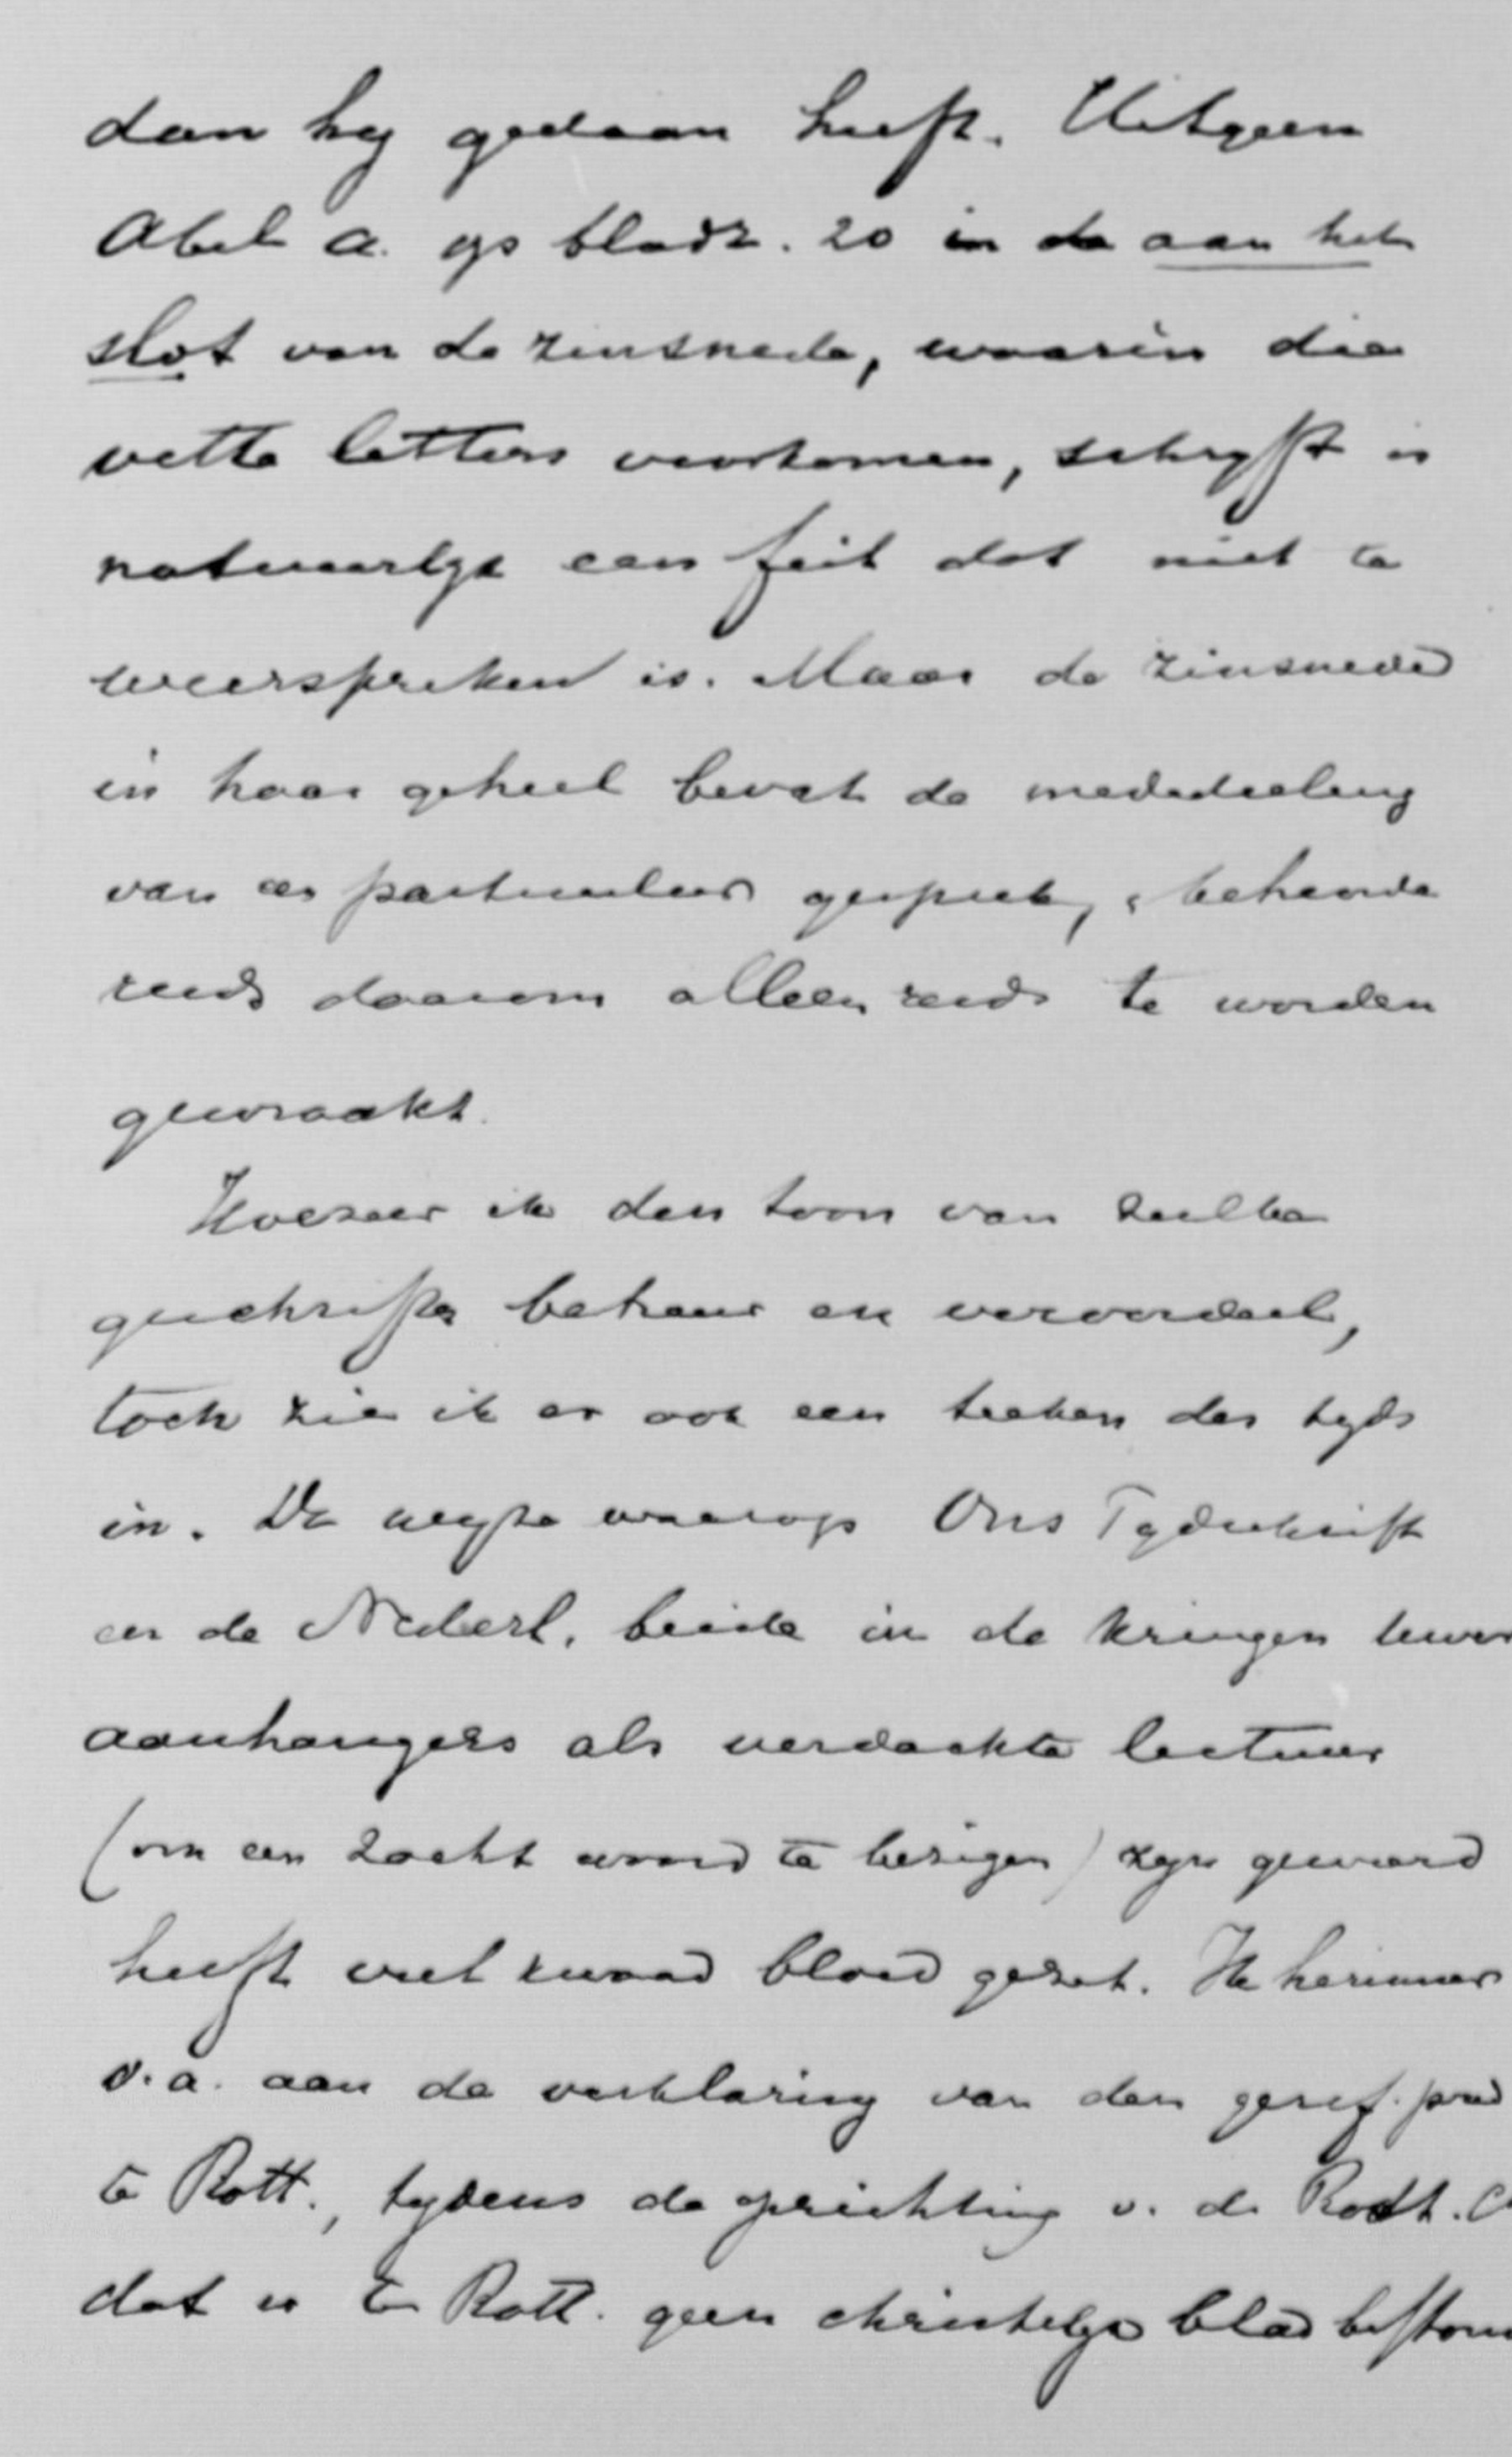 dan hy gedaan heeft. Hetgeen
Abel a. op bladz. 20 in de aan het
slot van de zinsnede, waarin die
vette letters voorkomen, schryft is
natuurlyk een feit dat niet te
weerspreken is. Maar de zinsnede
in haar geheel bevat de mededeeling
van een particulier gesprek, behoorde
reeds daarom alleen reeds te worden
gewraakt.
Hoezeer ik den toon van zulke
geschriften betreur en veroordeel,
toch zie ik er ook een teeken des tyds
in. De wyze waarop Ons Tydschrift
en de Nederl. beide in de kringen uwer
aanhangers als verdachte lectuur
(om een zacht woord te bezigen) zyn gewaard
heeft veel kwaad bloed gezet. Ik herinner
o.a. aan de verklaring van den geref. pred
te Rott., tydens de oprichting v. de Rott. C
dat er te Rott. geen christelyk blad beston